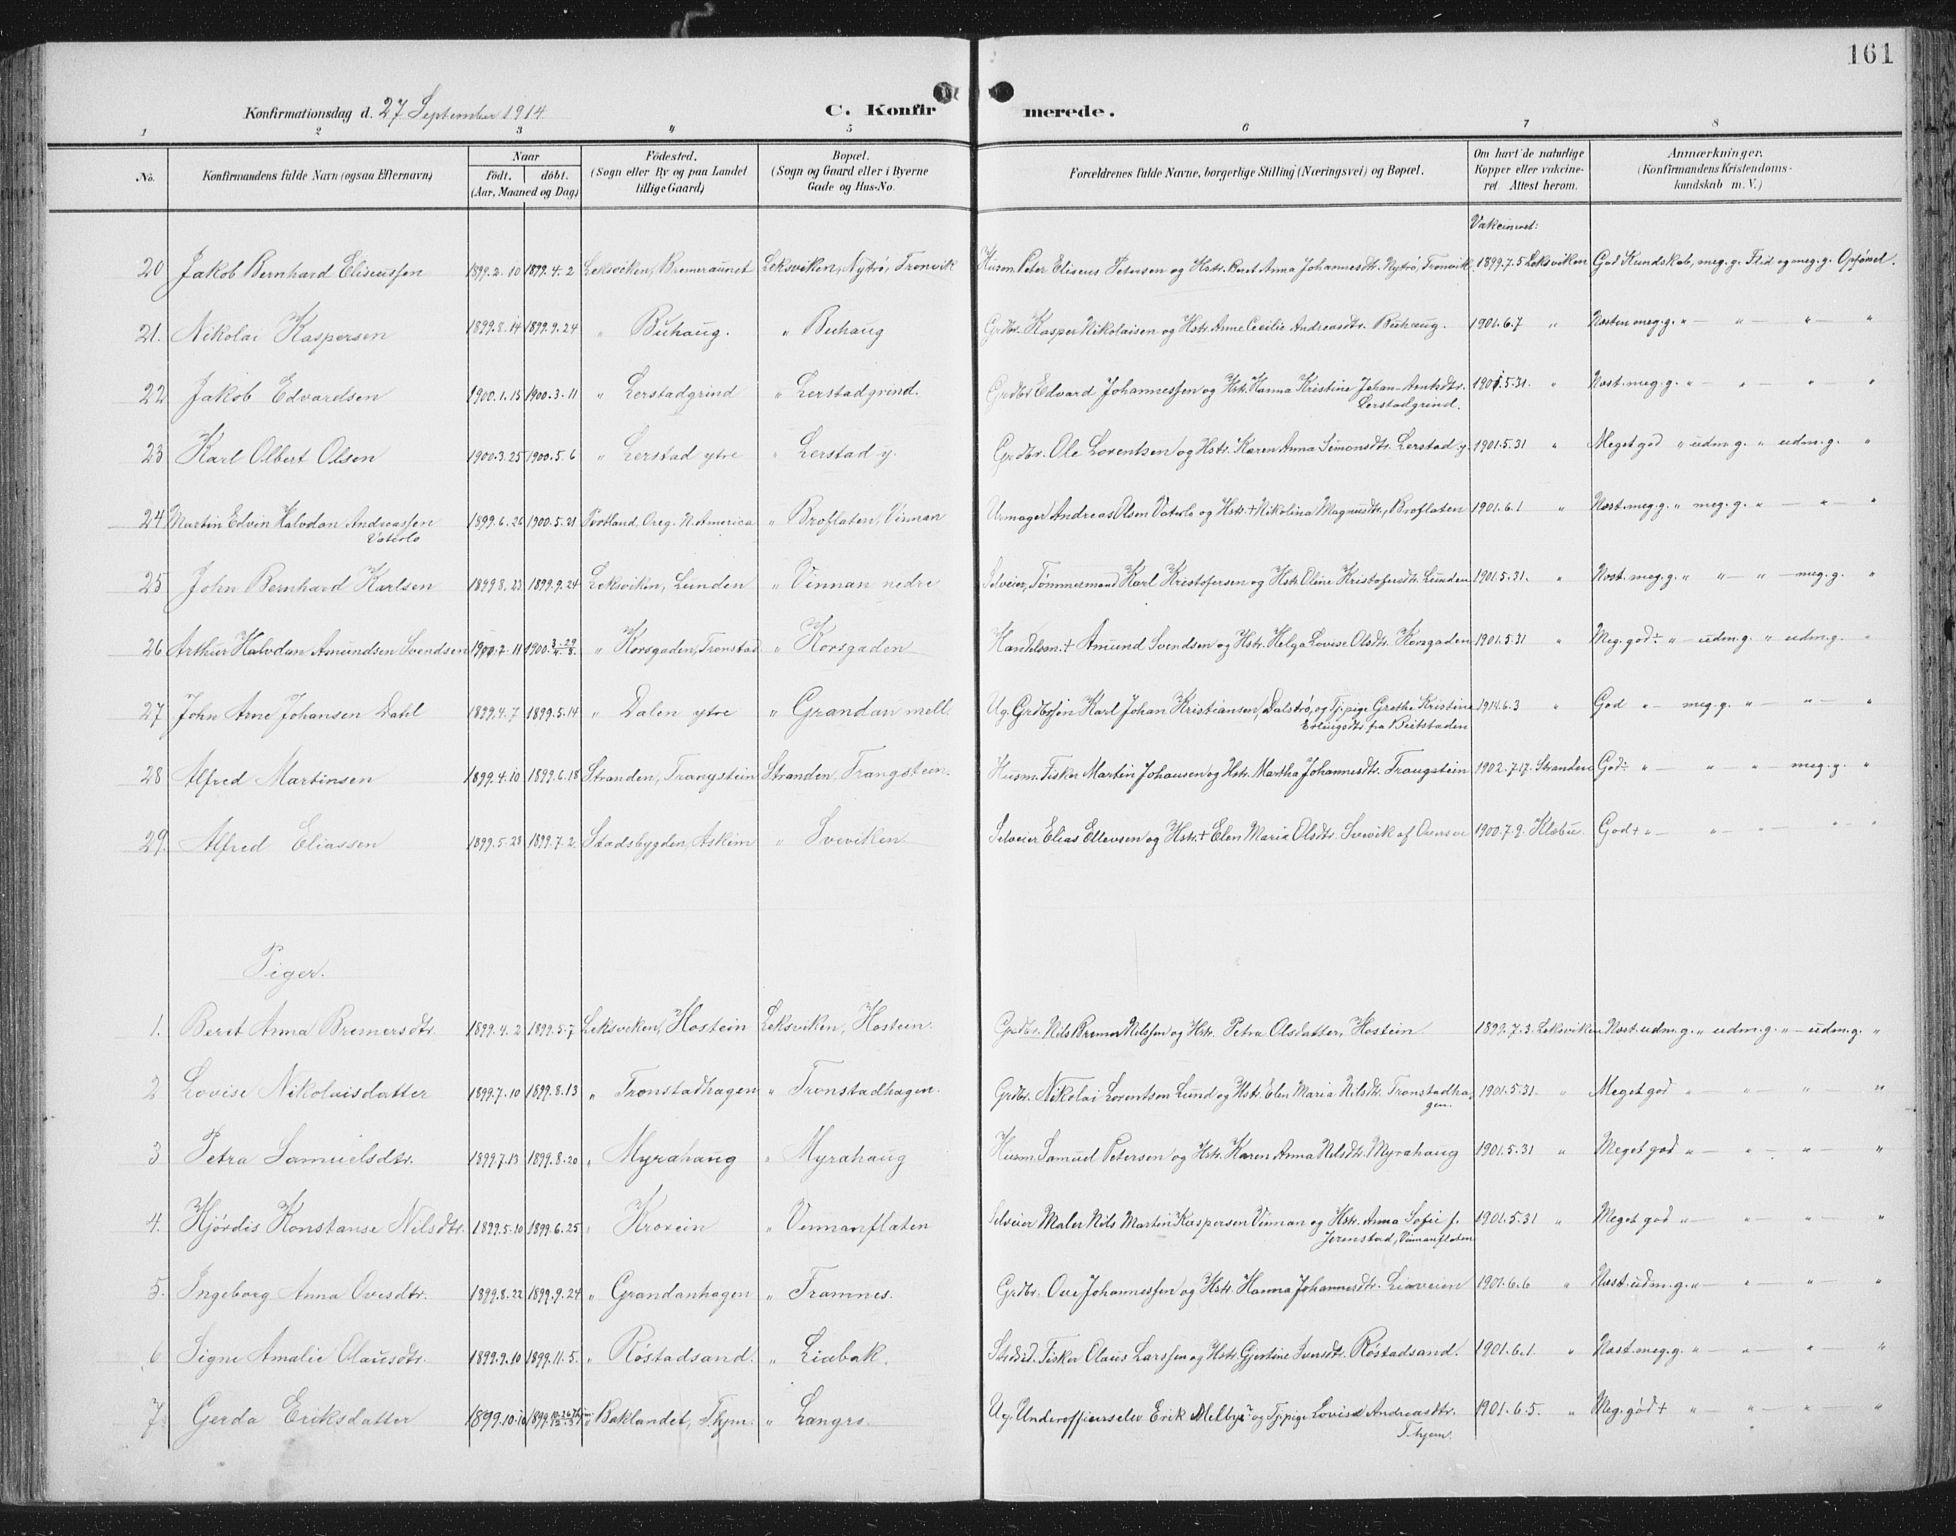 161
Konfirmationsdag d. 27 September 1914.
C. Konfirmerede.
1 2 3 4 5 6 7 8
No. Konfirmandens fulde Navn (ogsaa Efternavn) Naar födt. döbt. (Aar, Maaned og Dag) Födested. (Sogn eller By og paa Landet tillige Gaard) Bopæl. (Sogn og Gaard eller i Byerne Gade og Hus-No. Forældrenes fulde Navne, borgerlige Stilling (Næringsvei) og Bopæl. Om havt de naturlige Kopper eller vakcineret. Attest herom. Anmærkninger. (Konfirmandens Kristendomskundskab m. V.)
Vakcineret:
20 Jakob Bernhard Eliseussen 1899.2.10 1899.4.2 Leksviken, Bremeraunet Leksviken, Nytrø, Tronvik Husm. Peter Eliseus Petersen og Hstr. Beret Anna Johannesdtr. Nytrø, Tronvik 1899.7.5 Leksviken God Kundskab, meg. g. Flid og meg. g. Opførsel.
21. Nikolai Kaspersen 1899.8.14 1899.9.24 " Buhaug. " Buhaug Grdbr. Kasper Nikolaisen og Hstr. Arne Cecilie Andreasdtr. Buhaug. 1901.6.7 " Næsten meg. g. " — " — " — "
22 Jakob Edvardsen 1900.1.15 1900.3.11 " Lerstadgrind " Lerstadgrind. Grdbr. Edvard Johannessen og Hstr. Hanna Kristine Johan-Arntsdtr. Lerstadgrind. 1901.5.31. " Næst. meg. g. " — " — " — "
23 Karl Olbert Olsen 1900.3.25 1900.5.6 " Lerstad ytre " Lerstad y. Grdbr. Ole Lorentsen og Hstr. Karen Anna Simonsdtr. Lerstad y. 1901.5.31 " Meget god " udm. g. " udm. g. "
24 Martin Edvin Halvdan Andreassen Vaterlo 1899.6.26 1900.5.21 Portland, Oreg. N. America " Broflaten, Vinnan Urmager Andreas Olsen Vaterlo og Hstr. + Nikolina Magnusdtr., Broflaten 1901.6.1 " Næst. meg. g. " meg. g. " — " — "
25 John Bernhard Karlsen 1899.8.23 1899.9.24 Leksviken, Lunden " Vinnan nedre Selveier, Tømmermand Karl Kristofersen og Hstr. Oline Kristofersdtr. Lunden 1901.5.31. " Næst. meg. g. " " — " — meg. g. "
26 Arthur Halvdan Amundsen Svendsen 1900.2.11 " Korsgaden, Tronstad " Korsgaden Handelsm. + Amund Svendsen og Hstr. Helga Lovise Olsdtr. Korsgaden 1901.5.31 " Meg. god ÷ " — udm. g. " udm. g. "
27 John Arne Johansen Dahl 1899.4.7 1899.5.14 " Dalen ytre " Grandan mell. Ug. Grdbrsøn Karl Johan Kristiansen, Dalstrø, og Tjpige Grethe Kristine Erlingsdtr. fra Beitstaden 1914.6.3 " God " — meg. g. " — " — "
28 Alfred Martinsen 1899.4.10 1899.6.18 Stranden, Trangstein Stranden, Trangstein. Husm. Fisker Martin Johansen og Hstr. Martha Johannesdtr. Trangstein 1902.7.17. Stranden God ÷ " — " — " meg. g. "
29. Alfred Eliassen 1899.5.28 1899.7.2. Stadsbygden, Askim " Sveviken Selveier Elias Ellevsen og Hstr. + Elen Maria Olsdtr. Svevik af 1900.7.9. Klæbu. God + " — " — " — " — "
Piger.
1. Beret Anna Bremersdtr. 1899.4.2 1899.5.7 Leksviken, Hostein Leksviken, Hostein. Grdbr. Nils Bremer Nilssen og Hstr. Petra Olsdatter, Hostein 1899.7.3. Leksviken Næst. udm. g. " udm. g. " — udm. g. "
2 Lovise Nikolaisdatter 1899.7.10 1899.8.13 " Tronstadhagen " Tronstadhagen. Grdbr. Nikolai Lorentsen Lund og Hstr. Elen Maria Nilsdtr. Tronstadhagen. 1901.5.31. " Meget god " — " — " — "
3 Petra Samuelsdtr. 1899.7.13 1899.8.20 " Myrahaug " Myrahaug Husm. Samuel Petersen og Hstr. Karen Anna Nilsdtr. Myrahaug 1901.5.31 " Meget god " — " — " — "
4. Hjørdis Konstanse Nilsdtr. 1899.5.10 1899.6.25 " Kroxein " Vinnanflaten Selveier Maler Nils Martin Kaspersen Vinnan og Hstr. Anna Sofie f. Jerenstad, Vinnanflaten 1901.5.31 " Meget god " — " — " — "
5. Ingeborg Anna Ovesdtr. 1899.8.22 1899.9.24 " Grandanhagen " Framnes. Grdbr. Ove Johannessen og Hstr. Hanna Johannesdtr. Liaveien 1901.6.6 " Næst. udm. g. " — " — " — "
6 Signe Amalie Olausdtr. 1899.9.10 1899.11.5. " Røstadsand. " Liabak. Strdsid. Fisker Olaus Larssen og Hstr. Gjertine Iversdtr. Røstadsand. 1901.6.1. " Næst. meg. g. " — " — " — "
7. Gerda Eriksdatter 1899.10.10 Baklandet, Thjem. " Langrø. Ug. Underofficerselev Erik Melbye og Tjpige Lovise Andreasdtr. Thjem. 1901.6.5. " Meg. god + " — " — " — "